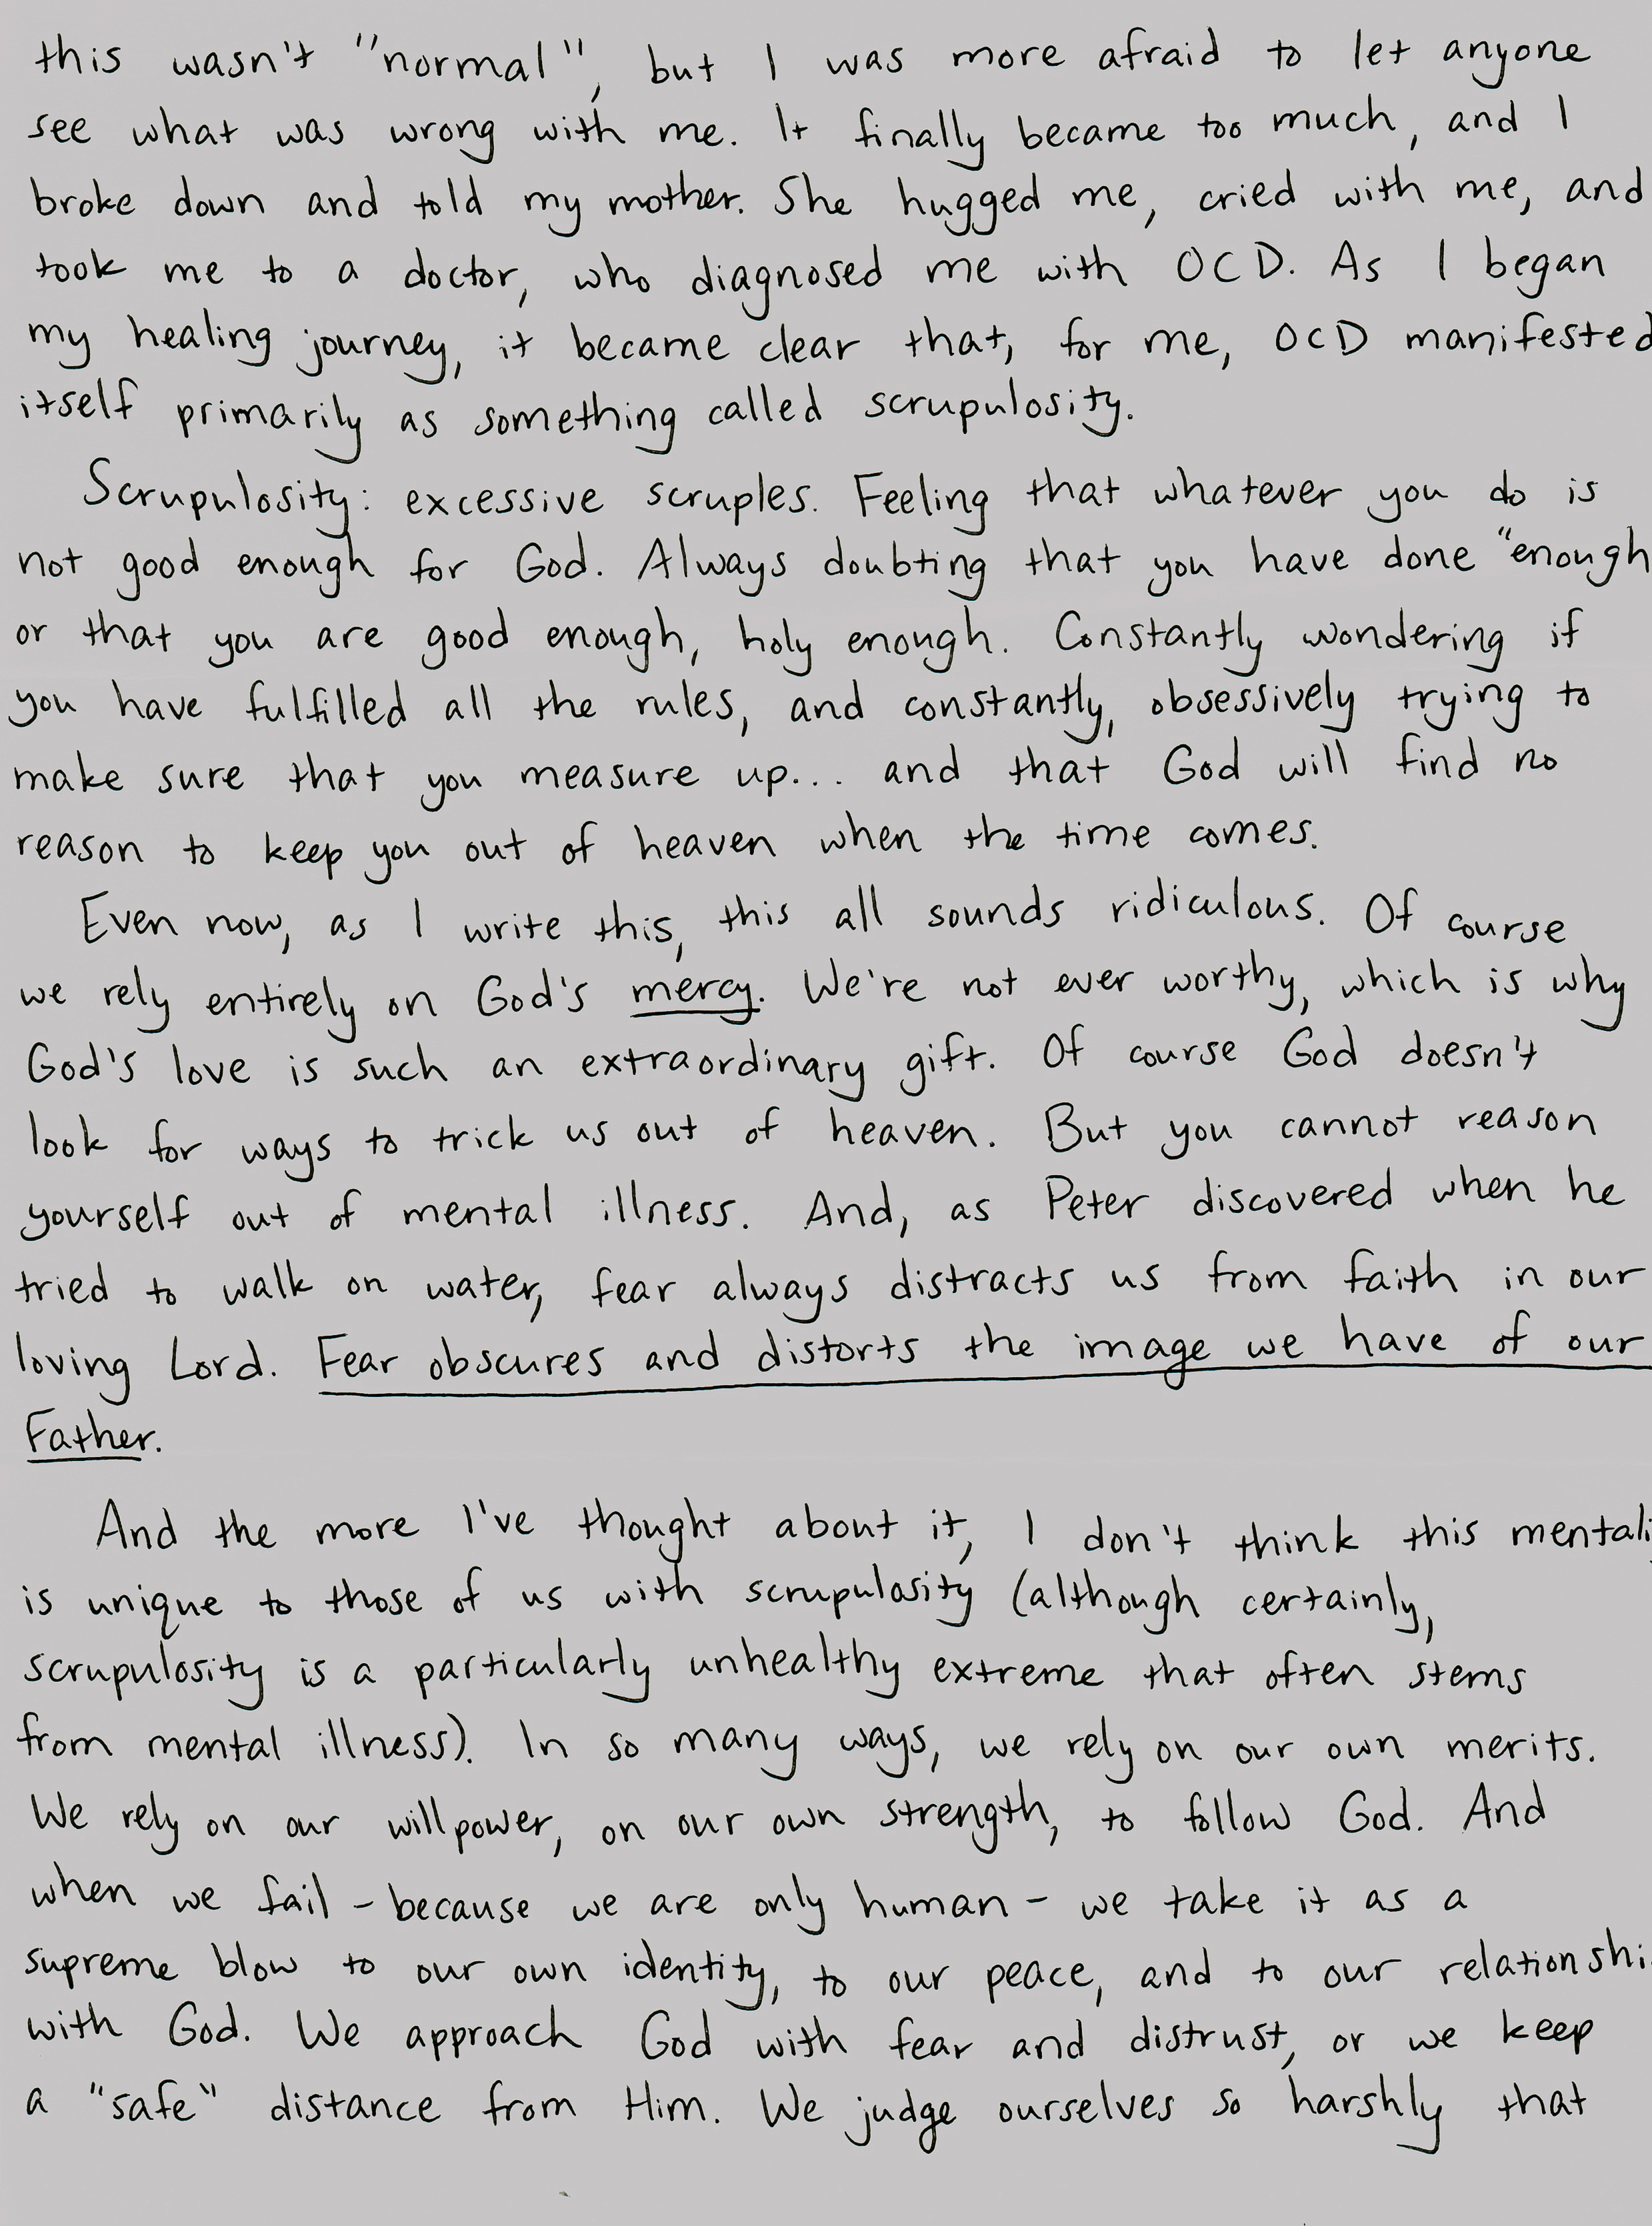 this wasn't "normal", but I was more afraid to let anyone
see what was wrong with me. It finally became too much, and I
broke down and told my mother. She hugged me, cried with me, and
took me to a doctor, who diagnosed me with OCD. As I began
my healing journey, it became clear that, for me, OCD manifested
itself primarily as something called scrupulosity.
Scrupulosity: excessive scruples. Feeling that whatever you do is
not good enough for God. Always doubting that you have done "enough
or that you are good enough, holy enough. Constantly wondering if
you have fulfilled all the rules, and constantly, obsessively trying to
make sure that you measure up... and that God will find no
reason to keep you out of heaven when the time comes.
Even now, as I write this, this all sounds ridiculous. Of course
we rely entirely on God's mercy. We're not ever worthy, which is why
God's love is such an extraordinary gift. Of course God doesn't
look for ways to trick us out of heaven. But you cannot reason
yourself out of mental illness. And, as Peter discovered when he
tried to walk on water, fear always distracts us from faith in our
loving Lord. Fear obscures and distorts the image we have of our
Father.
And the more I've thought about it, I don't think this mentali
is unique to those of us with scrupulosity (although certainly,
scrupulosity is a particularly unhealthy extreme that often stems
from mental illness). In so many ways, we rely on our own merits.
We rely on our willpower, on our own strength, to follow God. And
when we fail - because we are only human - we take it as a
supreme blow to our own identity, to our peace, and to our relationshi
with God. We approach God with fear and distrust, or we keep
a "safe" distance from Him. We judge ourselves so harshly that